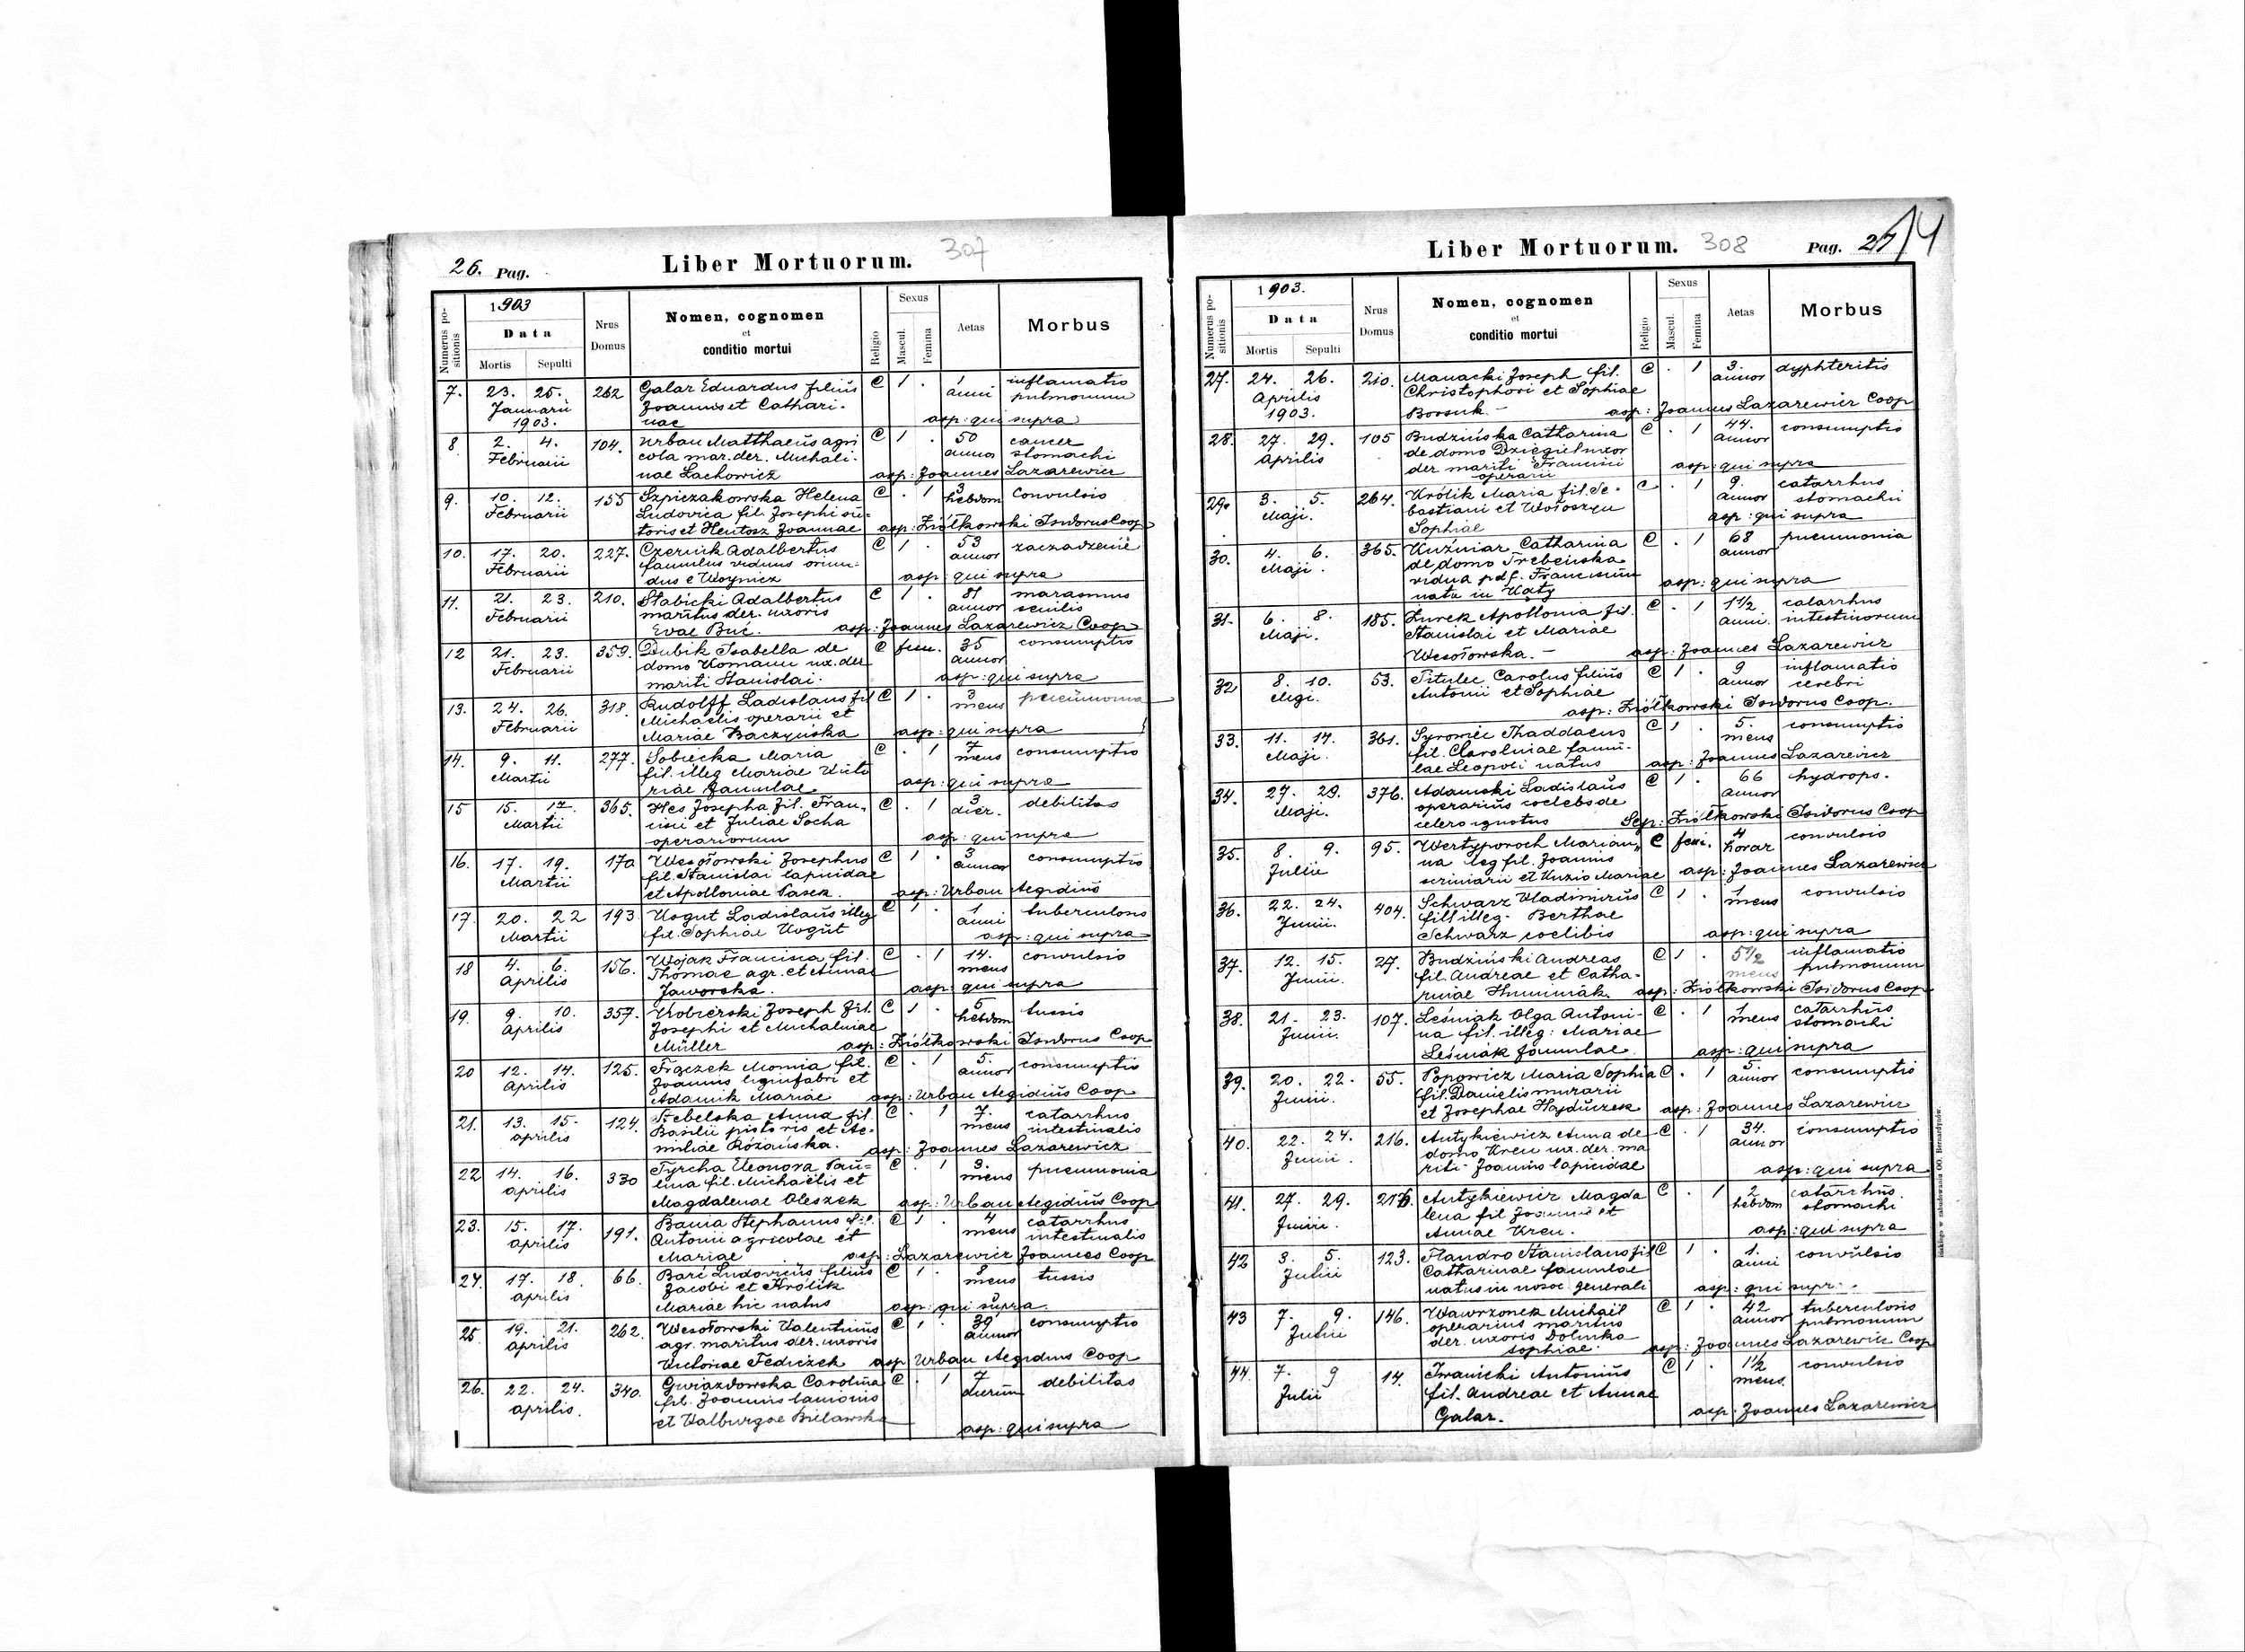 26. Pag.
Liber Mortuorum.
307
Numerus positionis
1903
Data
Mortis
Sepulti
Nrus Domus
Nomen, cognomen
et
conditio mortui
Religio
Sexus
Mascul.
Femina
Aetas
Morbus
7. 23. 25. 262 Galar Eduardus filius C 1 . 1 inflamatio
Januarii Joannis et Cathari- anni pulmonum
1903. nae asp: qui supra
8 2. 4. 104. Urban Matthaeus agri C 1 . 50 cancer
Februarii cola mar. der. Michali- annor stomachi
nae Lachowicz asp: Joannes Lazarewicz
9. 10. 12. 155 Szpiczakowska Helena C . 1 3 convulsio
Februarii Ludovica fil. Josephi su- hebdom
toris et Hentosz Joannae asp: Ziółkowski Isidorus Coop
10. 17. 20. 227. Czernik Adalbertus C 1 . 53 zaczadzenie
Februarii famulus viduus oriun- annor
dus e Woynicz asp: qui supra
11. 21. 23. 210. Słabicki Adalbertus C 1 . 81 marasmus
Februarii maritus der. uxoris annor senilis
Evae Buć. asp: Joannes Lazarewicz Coop
12 21. 23. 359. Dubik Isabella de C fem. 35 consumptio
Februarii domo Komann ux. der annor
mariti Stanislai. asp: qui supra
13. 24. 26. 318. Rudolff Ladislaus fil C 1 . 3 pneumonia
Februarii Michaelis operarii et mens
Mariae Baczyńska asp: qui supra
14. 9. 11. 277. Sobiecka Maria C . 1 7 consumptio
Martii fil. illeg Mariae Victo mens
riae famulae asp: qui supra
15 15. 17. 365. Hes Josepha fil. Fran- C . 1 3 debilitas
Martii cisci et Juliae Socha dier.
operariorum asp: qui supra
16. 17. 19. 170 Wesołowski Josephus C 1 . 3 consumptio
Martii fil. Stanislai lapicidae annor
et Apolloniae Pasek. asp: Urban Aegidius
17. 20. 22 193 Kogut Ladislaus illeg C 1 . 1 tuberculosis
Martii fil. Sophiae Kogut anni
asp: qui supra
18 4. 6. 156. Wojak Francisca fil. C . 1 14. convulsio
Aprilis Thomae agr. et Annae mens
Jaworska. asp: qui supra
19. 9. 10. 357. Kobierski Joseph fil. C 1 . 6 tussis
Aprilis Josephi et Michalinae hebdom
Müller asp: Ziółkowski Isidorus Coop
20 12. 14. 125. Frączek Monia fil. C . 1 5. consumptio
Aprilis Joannis lignifabri et annor
Adamik Mariae asp: Urban Aegidius Coop
21. 13. 15. 124. Trebelska Anna fil. C . 1 7. catarrhus
aprilis Basilii pistoris et Ae- mens intestinalis
miliae Różańska. asp: Joannes Lazarewicz
22 14. 16. 330 Tyrcha Eleonora Pau- C . 1 9. pneumonia
aprilis lina fil. Michaelis et mens
Magdalenae Oleszek asp: Urban Aegidius Coop
23. 15. 17. 191. Bania Stephanus fil. C 1 . 4 catarrhus
aprilis Antonii agricolae et mens intestinalis
Mariae asp: Lazarewicz Joannes Coop
24. 17. 18. 66. Barć Ludovicus filius C 1 . 8 tussis
aprilis Jacobi et Królik mens
Mariae hic natus asp: qui supra.
25 19. 21. 262. Wesołowski Valentinus C 1 . 39 consumptio
aprilis agr. maritus der. uxoris annor
Victoriae Fediczek asp Urban Aegidius Coop
26. 22. 24. 340. Gwiazdowska Carolina C . 1 7 debilitas
aprilis. fil. Joannis lanionis dierum
et Valburgae Bielawska
asp: qui supra
Liber Mortuorum.
308
Pag. 27
14
Numerus positionis
1903.
Data
Mortis
Sepulti
Nrus Domus
Nomen, cognomen
et
conditio mortui
Religio
Sexus
Mascul.
Femina
Aetas
Morbus
27. 24. 26. 210. Manacki Joseph fil. C . 1 3. dyphteritis
Aprilis Christophori et Sophiae annor
1903. Borsuk.- asp: Joannes Lazarewicz Coop
28. 27. 29. 105 Budzińska Catharina C . 1 44. consumptio
Aprilis de domo Dzięgiel uxor annor
der mariti Francisci asp: qui supra
operarii
29. 3. 5. 264. Królik Maria fil. Se- C . 1 9. catarrhus
Maji. bastiani et Wołoszyn annor stomachi
Sophiae asp: qui supra
30. 4. 6. 365. Kuźniar Catharina C . 1 68 pneumonia
Maji. de domo Trebeńska annor
vidua p d f. Franciscum asp: qui supra
nata in Kąty
31. 6. 8. 185. Żurek Apollonia fil. C . 1 1 1/2 catarrhus
Maji. Stanislai et Mariae anni. intestinorum
Wesołowska.- asp: Joannes Lazarewicz
32 8. 10. 53. Titulec Carolus filius C 1 . 9 inflamatio
Megi. Antonii et Sophiae annor cerebri
asp: Ziółkowski Isidorus Coop.
33. 11. 14. 361. Syrowiec Thaddaeus C 1 . 5. consumptio
Maji. fil. Carolinae famu- mens
lae Leopoli natus asp: Joannes Lazarewicz
34. 27. 29. 376. Adamski Ladislaus C 1 . 66 hydrops.
Maji. operarius coelebs de annor
cetero ignotus Sep: Ziółkowski Isidorus Coop
35. 8. 9. 95. Wertyporoch Marian- C fem. 4 convulsio
Jullii na leg fil. Joannis horar
scriniarii et Kuzio Mariae asp: Joannes Lazarewicz
36. 22. 24. 404. Schwarz Vladimirus C 1 . 1 convulsio
Junii. fill illeg. Berthae mens
Schwarz coelibis asp: qui supra
37. 12. 15. 27. Budziński Andreas C 1 . 5 1/2 inflamatio
Junii. fil. Andreae et Catha- mens pulmonum
rinae Huminiak asp: Ziółkowski Isidorus Coop
38. 21. 23. 107. Leśniak Olga Antoni- C . 1 1 catarrhus
Junii. na fil. illeg: Mariae mens stomachi
Leśniak famulae asp: qui supra
39. 20. 22. 55. Popowicz Maria Sophia C . 1 5 consumptio
Junii. fil. Danielis murarii annor
et Josephae Hajduczek asp: Joannes Lazarewicz
40. 22. 24. 216. Antykiewicz Anna de C . 1 34. consumptio
Junii. domo Kren ux. der. ma annor
riti Joannis lapicidae asp: qui supra
41. 27. 29. 216 Antykiewicz Magda C . 1 2 catarrhus
Junii. lena fil Joannis et hebdom stomachi
Annae Kren. asp: qui supra
42 3. 5. 123. Flandro Stanislaus fil C 1 . 1. convulsio
Julii Catharinae famulae anni
natus in nosoc generali asp: qui supr.
43 7. 9. 146. Wawrzonek Michael C 1 . 42 tuberculosis
Julii operarius maritus annor pulmonum
der. uxoris Dolinka asp: Joannes Lazarewicz Coop
sophiae.
44. 7. 9 14. Iwanicki Antonius C 1 . 1 1/2 convulsio
Julii fil. Andreae et Annae mens.
Galar. asp: Joannes Lazarewicz